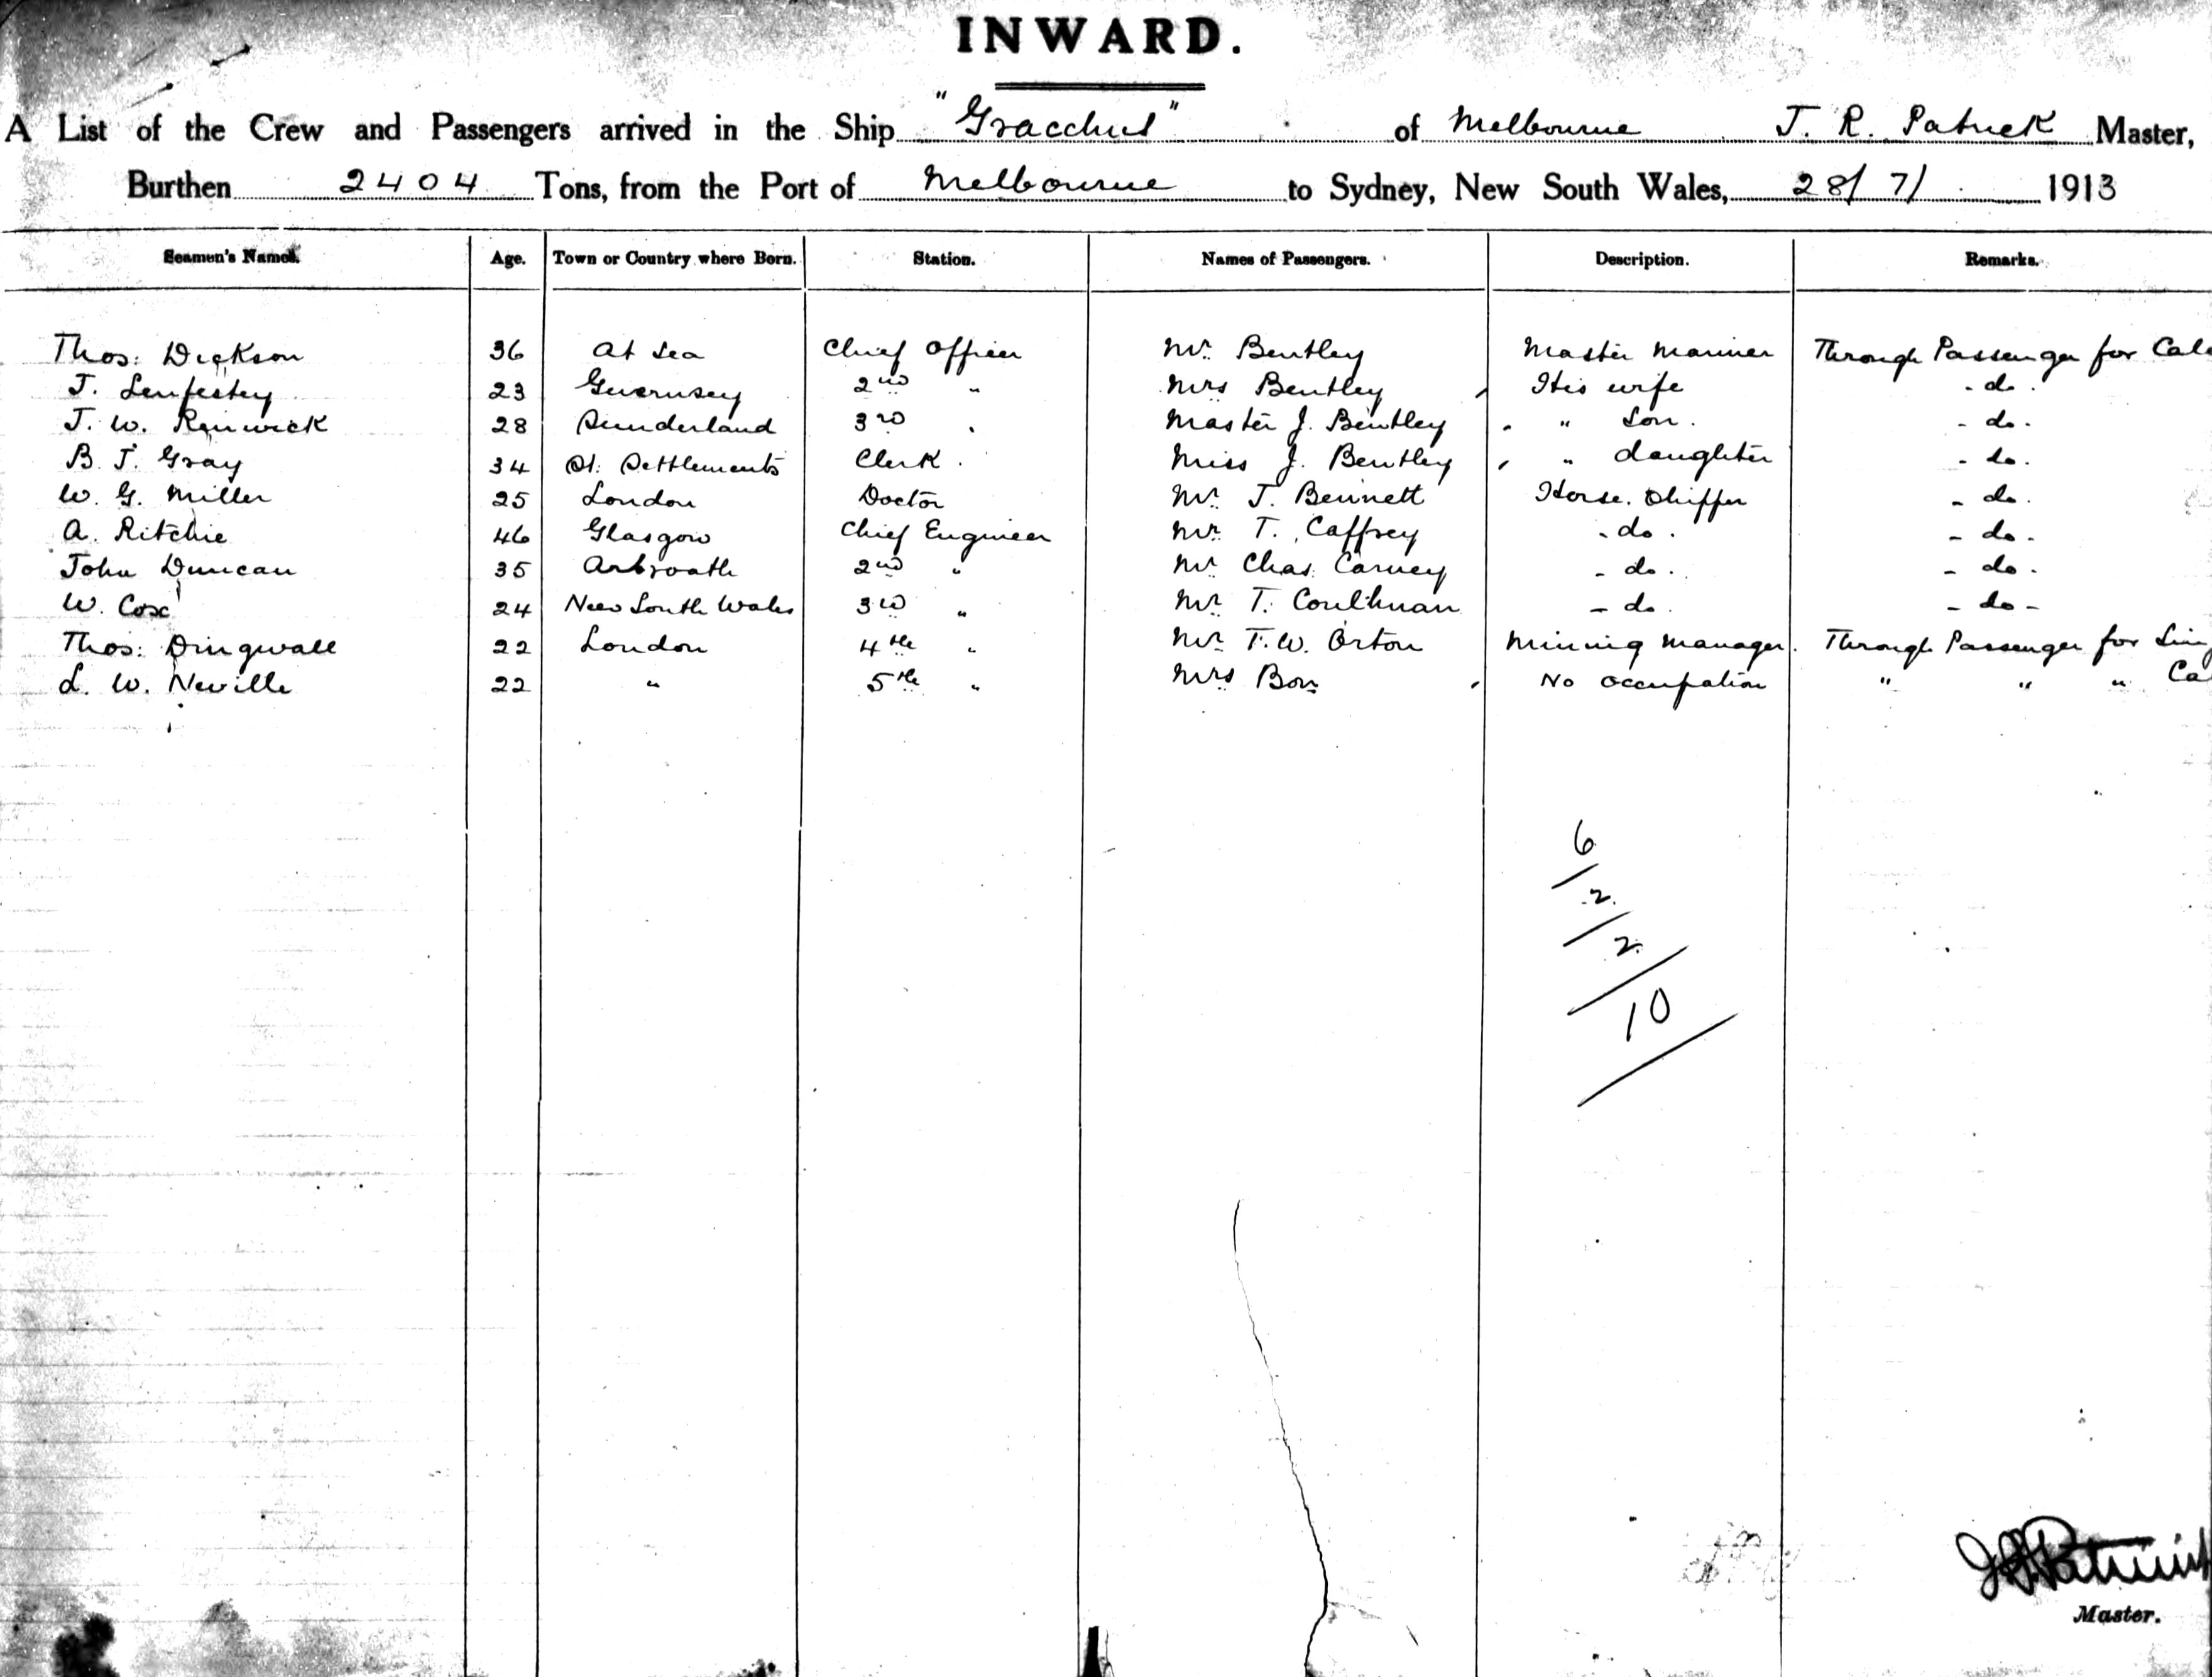 INWARD.
A List of the Crew and Passengers arrived in the Ship "Gracchus" of Melbourne J. R. Patrick Master,
Burthen 2404 Tons, from the Port of Melbourne to Sydney, New South Wales, 28/7/ 1913
Seamen's Names. Age. Town or Country where Born. Station. Names of Passengers. Description. Remarks.
Thos: Dickson 36 At Sea Chief Officer Mr. Bentley Master Mariner Through Passenger for Cal
J. Lenfestey 23 Guernsey 2nd " Mrs Bentley His wife - do.
J. W. Renwick 28 Sunderland 3rd " Master J. Bentley " Son. - do.
B. J. Gray 34 St. Settlements Clerk. Miss J. Bentley " daughter - do.
W. G. Miller 25 London Doctor Mr. J. Bennett Horse. Shipper - do.
A. Ritchie 46 Glasgow Chief Engineer Mr. T. Caffrey - do. - do.
John Duncan 35 Arbroath 2nd " Mr Chas. Carney - do. - do.
W. Cox 24 New South Wales 3rd " Mr. T. Coulthman - do. - do -
Thos: Dingwall 22 London 4th " Mr T. W. Orton Mining Manager. Through Passenger for Sing
L. W. Neville 22 " 5th " Mrs Bon No occupation " " " Ca
6/
2/
2/
10/
Master.